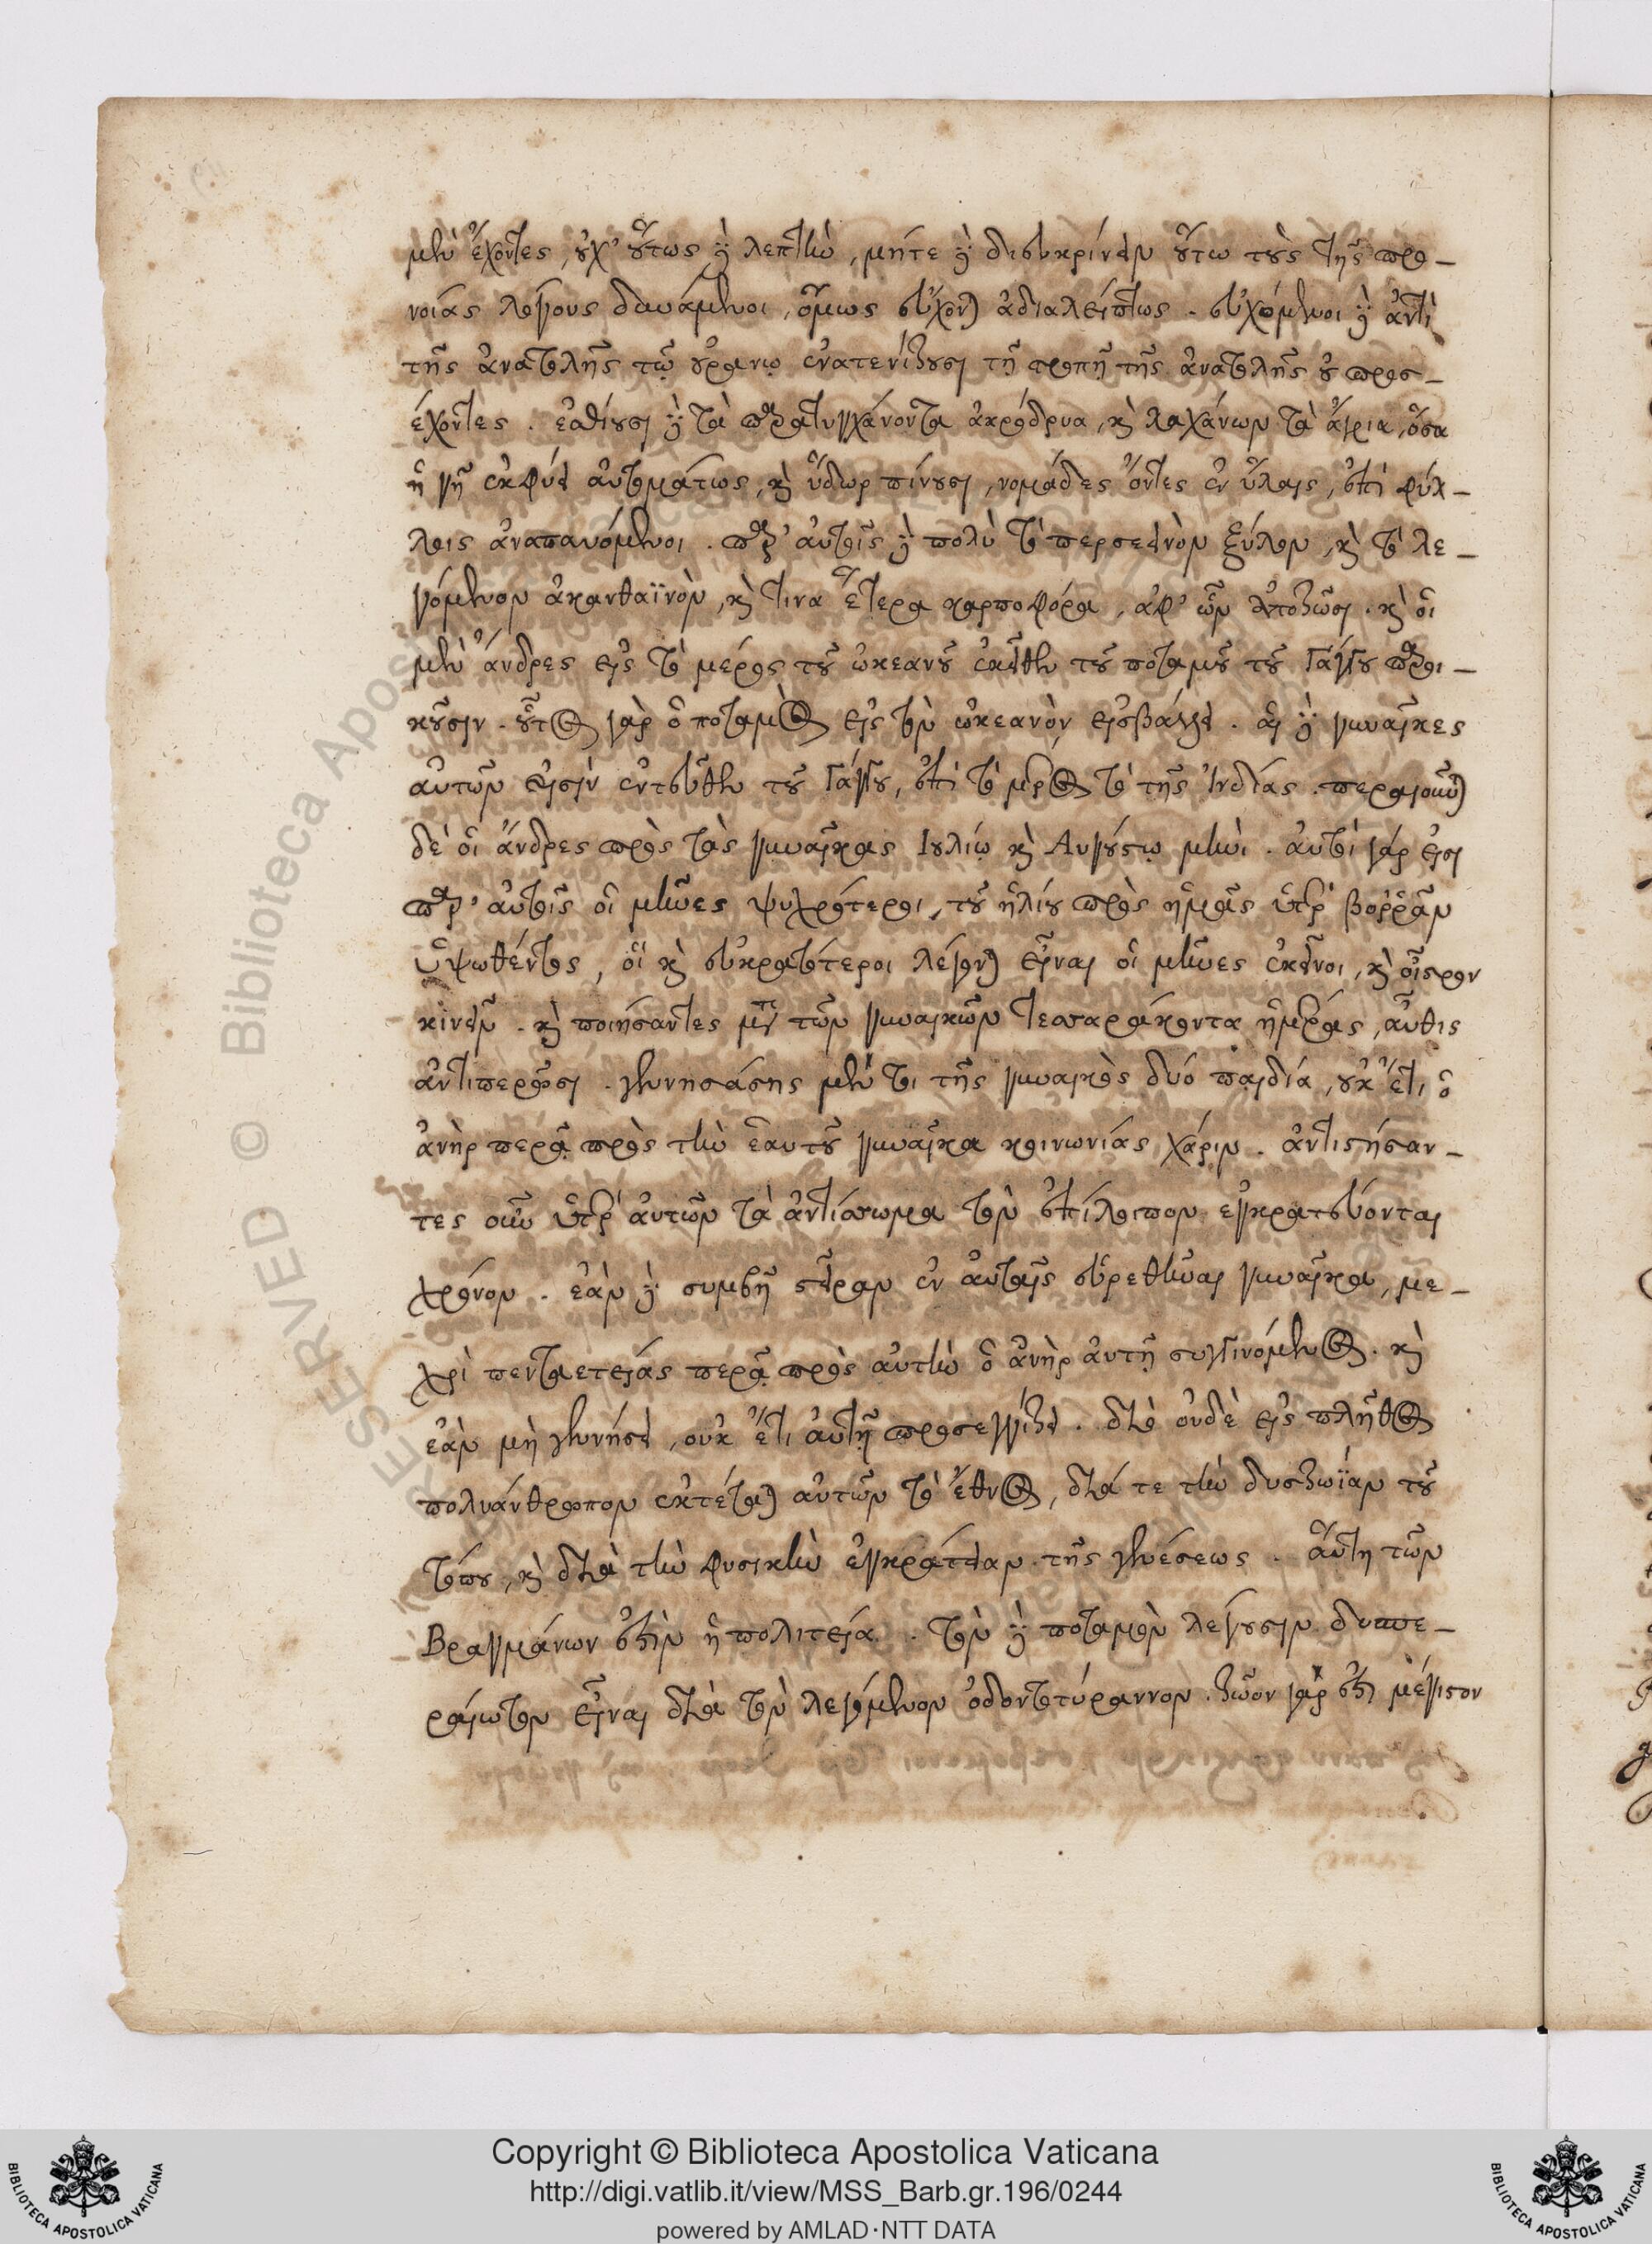 μὲν ἔχοντες, οὐχ' οὕτως δὲ λεπτὴν, μήτε δὲ διευκρίνειν οὕτω τοὺς τῆς προ-
νοίας λόγους δυνάμενοι, ὅμως εὔχονται ἀδιαλείπτως. εὐχόμενοι δὲ ἀντὶ
τῆς ἀνατολῆς τῷ οὐρανῷ ἐνατενίζουσι τῇ τροπῇ τῆς ἀνατολῆς οὐ προσ-
έχοντες. ἐσθίουσι δὲ τὰ παρατυγχάνοντα ἀκρόδρυα, καὶ λαχάνων τὰ ἄγρια, ὅσα
ἡ γῆ ἐκφύει αὐτομάτως, καὶ ὕδωρ πίνουσι, νομάδες ὄντες ἐν ὕλαις, ἐπὶ φύλ-
λοις ἀναπαυόμενοι. παρ' αὐτοῖς δὲ πολὺ τὸ περσεεινὸν ξύλον, καὶ τὸ λε-
γόμενον ἀκανθαϊνὸν, καὶ τινα ἕτερα καρποφόρα, ἀφ' ὧν ἀποζῶσι. καὶ οἱ
μὲν ἄνδρες εἰς τὸ μέρος τοῦ ὠκεανοῦ ἐκεῖθεν τοῦ ποταμοῦ τοῦ Γάγγου παροι-
κοῦσιν. οὗτος γὰρ ὁ ποταμὸς εἰς τὸν ὠκεανὸν εἰσβάλλει. αἱ δὲ γυναῖκες
αὐτῶν εἰσὶν ἐντεῦθεν τοῦ Γάγγου, ἐπὶ τὸ μέρος τὸ τῆς Ἰνδίας. περαιοῦνται
δὲ οἱ ἄνδρες πρὸς τὰς γυναῖκας Ἰουλίῳ καὶ Αὐγούστῳ μηνὶ. αὐτοὶ γάρ εἰσι
παρ' αὐτοῖς οἱ μῆνες ψυχρότεροι, τοῦ ἡλίου πρὸς ἡμᾶς ὑπὲρ βορῥᾶν
ὑψωθέντος, οἳ καὶ εὐκρατότεροι λέγονται εἶναι οἱ μῆνες ἐκεῖνοι, καὶ οἶστρον
κινεῖν. καὶ ποιήσαντες μετὰ τῶν γυναικῶν τεσσαράκοντα ἡμέρας, αὖθις
ἀντιπερῶσι. γεννησάσης μέν τοι τῆς γυναικὸς δύο παιδία, οὐκ ἔτι ὁ
ἀνὴρ περᾷ πρὸς τὴν ἑαυτοῦ γυναῖκα κοινωνίας χάριν. ἀντιστήσαν-
τες οὖν ὑπὲρ αὐτῶν τὰ ἀντίσωμα τὸν ἐπίλοιπον ἐγκρατεύονται
χρόνον. ἐὰν δὲ συμβῇ στεῖραν ἐν αὐταῖς εὑρεθῆναι γυναῖκα, με-
χρὶ πενταετείας περᾷ πρὸς αὐτὴν ὁ ἀνὴρ αὐτῇ συγγινόμενος. καὶ
ἐὰν μὴ γεννήσει, οὐκ ἔτι αὐτῇ προσεγγίζει. διὸ οὐδὲ εἰς πλῆθος
πολυάνθρωπον ἐκτέταται αὐτῶν τὸ ἔθνος, διά τε τὴν δυσζωΐαν τοῦ
τόπου, καὶ διὰ τὴν φυσικὴν ἐγκράτειαν τῆς γενέσεως. αὕτη τῶν
Βραγμάνων ἐστὶν ἡ πολιτεία. τὸν δὲ ποταμὸν λέγουσιν δυσπε-
ραίωτον εἶναι διὰ τὸν λεγόμενον ὀδοντοτύραννον. ζῶον γάρ ἐστι μέγιστον
Copyright © Biblioteca Apostolica Vaticana
http://digi.vatlib.it/view/MSS_Barb.gr.196/0244
powered by AMLAD·NTT DATA